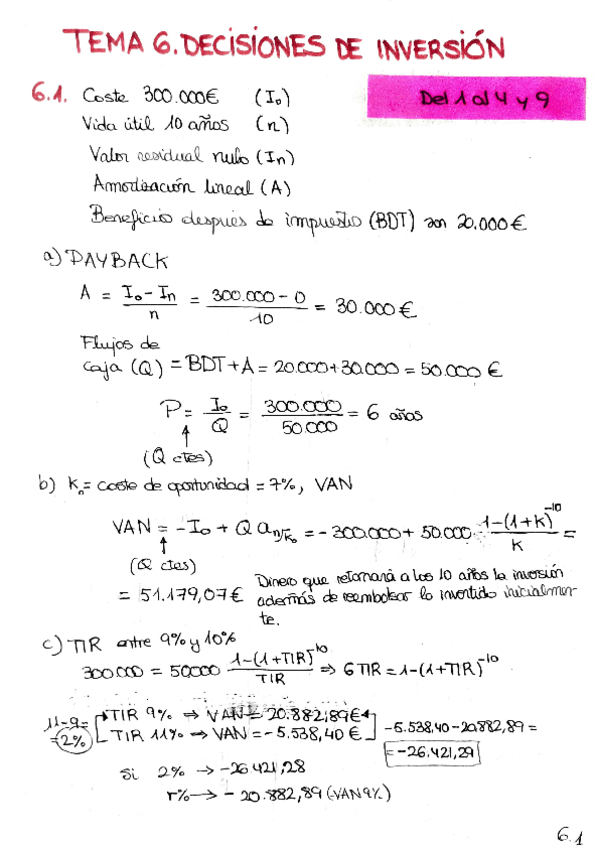 TEMA 6. DECISIONES DE INVERSIÓN
6.1. Coste 300.000€ (I₀)
Del 1 al 4 y 9
Vida útil 10 años (n)
Valor residual nulo (In)
Amortización lineal (A)
Beneficio después de impuesto (BDT) son 20.000€
a) PAYBACK
A = (I₀ - In)/n = (300.000 - 0)/10 = 30.000€
Flujos de
caja (Q) = BDT + A = 20.000 + 30.000 = 50.000 €
P = I₀/Q = 300.000/50.000 = 6 años
(Q ctes)
b) K₀ = coste de oportunidad = 7%, VAN
VAN = -I₀ + Q a n⌉K₀ = -300.000 + 50.000 · (1-(1+K)^-10)/K =
(Q ctes)
= 51.179,07€ Dinero que retornará a los 10 años la inversión
además de reembolsar lo invertido inicialmen-
te.
c) TIR entre 9% y 10%
300.000 = 50000 (1-(1+TIR)^-10)/TIR ⇒ 6TIR = 1-(1+TIR)^-10
11-9= TIR 9% ⇒ VAN = 20.882,89€
=2% TIR 11% ⇒ VAN = -5.538,40€
-5.538,40-20.882,89 =
= -26.421,29
Si 2% → -26421,28
r% → -20.882,89 (VAN 9%)
6.1